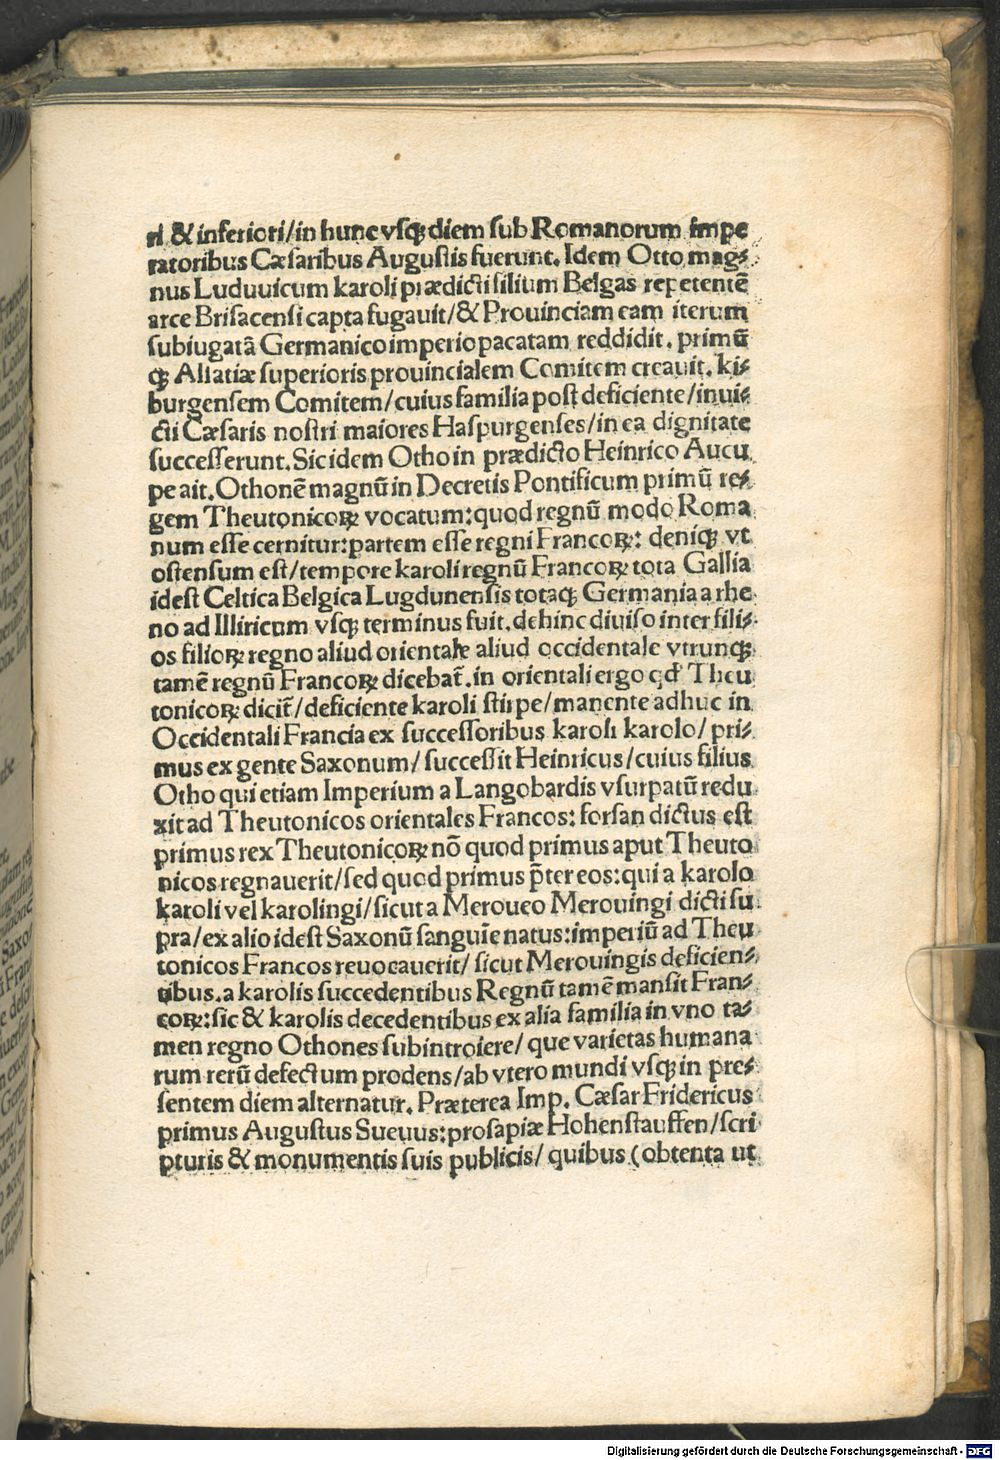 ri & inferiori/in hunc vſqꝫ diem ſub Romanorum impe
ratoribus Cæſaribus Auguſtis fuerunt. Idem Otto mag⸗
nus Luduuicum karoli prædicti filium Belgas repetentē
arce Briſacenſi capta fugauit/& Prouinciam eam iterum
ſubiugatā Germanico imperio pacatam reddidit. primū
qꝫ Alſatiæ ſuperioris prouincialem Comitem creauit. ki⸗
burgenſem Comitem/cuius familia poſt deficiente/inui⸗
cti Cæſaris noſtri maiores Haſpurgenſes/in ea dignitate
ſucceſſerunt. Sic idem Otho in prædicto Heinrico Aucu
pe ait. Othonē magnū in Decretis Pontificum primū re⸗
gem Theutonicoꝝ vocatum: quod regnū modo Roma
num eſſe cernitur: partem eſſe regni Francoꝝ: deniqꝫ vt
oſtenſum eſt/tempore karoli regnū Francoꝝ tota Gallia
ideſt Celtica Belgica Lugdunenſis totaqꝫ Germania a rhe
no ad Illiricum vſqꝫ terminus fuit. dehinc diuiſo inter fili⸗
os filioꝝ regno aliud orientale aliud occidentale vtrunqꝫ
tamē regnū Francoꝝ dicebat̄. in orientali ergo qd̓ Theu
tonicoꝝ dicit̄/deficiente karoli ſtirpe/manente adhuc in
Occidentali Francia ex ſucceſſoribus karoli karolo/pri⸗
mus ex gente Saxonum/ſucceſſit Heinricus/cuius filius
Otho qui etiam Imperium a Langobardis vſurpatū redu
xit ad Theutonicos orientales Francos: forſan dictus eſt
primus rex Theutonicoꝝ nō quod primus aput Theuto
nicos regnauerit/ſed quod primus p̄ter eos: qui a karolo
karoli vel karolingi/ſicut a Meroueo Merouingi dicti ſu
pra/ex alio ideſt Saxonū ſanguīe natus: imperiū ad Theu
tonicos Francos reuocauerit/ſicut Merouingis deficien⸗
tibus. a karolis ſuccedentibus Regnū tamē manſit Fran⸗
coꝝ: ſic & karolis decedentibus ex alia familia in vno ta⸗
men regno Othones ſubintroiere/que varietas humana
rum rerū defectum prodens/ab vtero mundi vſqꝫ in pre⸗
ſentem diem alternatur. Præterea Imp. Cæſar Fridericus
primus Auguſtus Sueuus: proſapiæ Hohenſtauffen/ſcri
pturis & monumentis ſuis publicis/quibus (obtenta ut
Digitalisierung gefördert durch die Deutsche Forschungsgemeinschaft - DFG